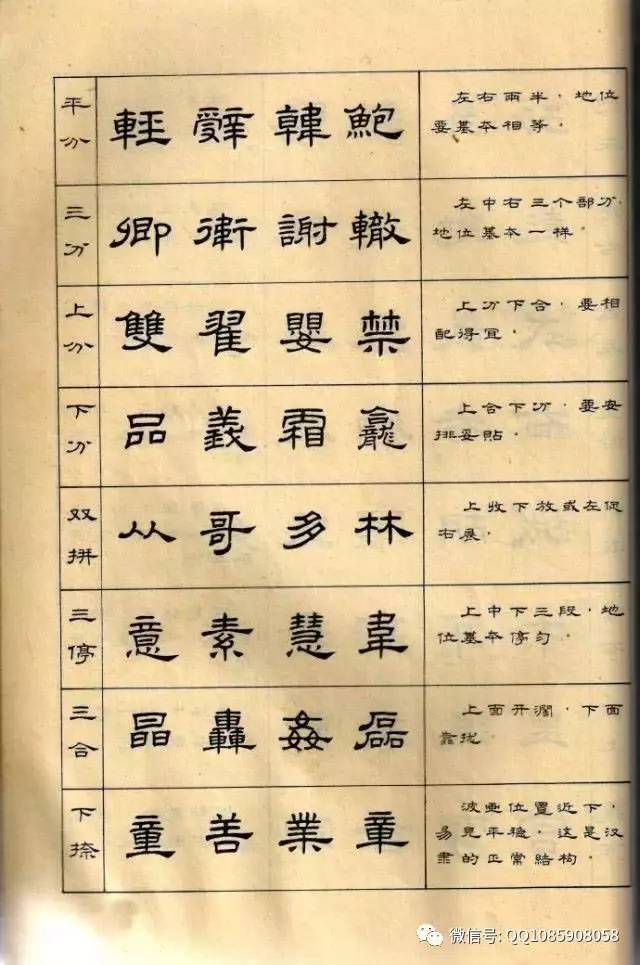 平分
輕 辭 韓 鮑
左右兩半，地位
要基本相等。
三分
卿 衛 謝 轍
左中右三个部分，
地位基本一样。
上分
雙 翟 嬰 禁
上分下合，要相
配得宜，
下分
品 義 霜 龕
上合下分，要安
排妥貼，
双拼
从 哥 多 林
上收下放或左促
右展，
三停
意 素 慧 韋
上中下三段，地
位基本停匀。
三合
晶 轟 姦 磊
上面开濶，下面
靠拢
下捺
童 善 業 章
波画位置近下，
易見平穩，这是汉
隶的正常结构，
微信号: QQ1085908058